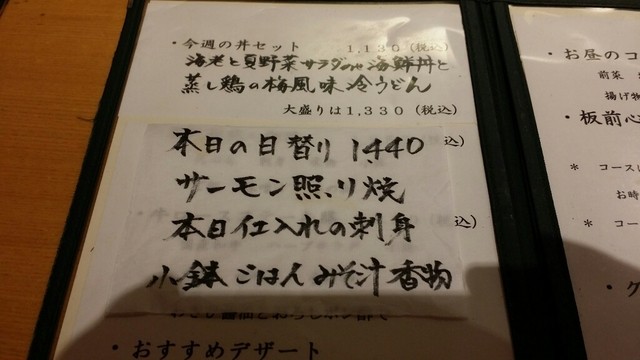 ・今週の丼セット　1,130（税込）
海老と夏野菜サラダのせ海鮮丼と
蒸し鶏の梅風味冷うどん
大盛りは1,330（税込）
本日の日替り 1,440
込）
サーモン照り焼
本日仕入れの刺身
込）
小鉢ごはんみそ汁香物
・おすすめデザート
・お昼のコ
前菜
揚げ物
・板前心
＊ コース
お時
＊ コー